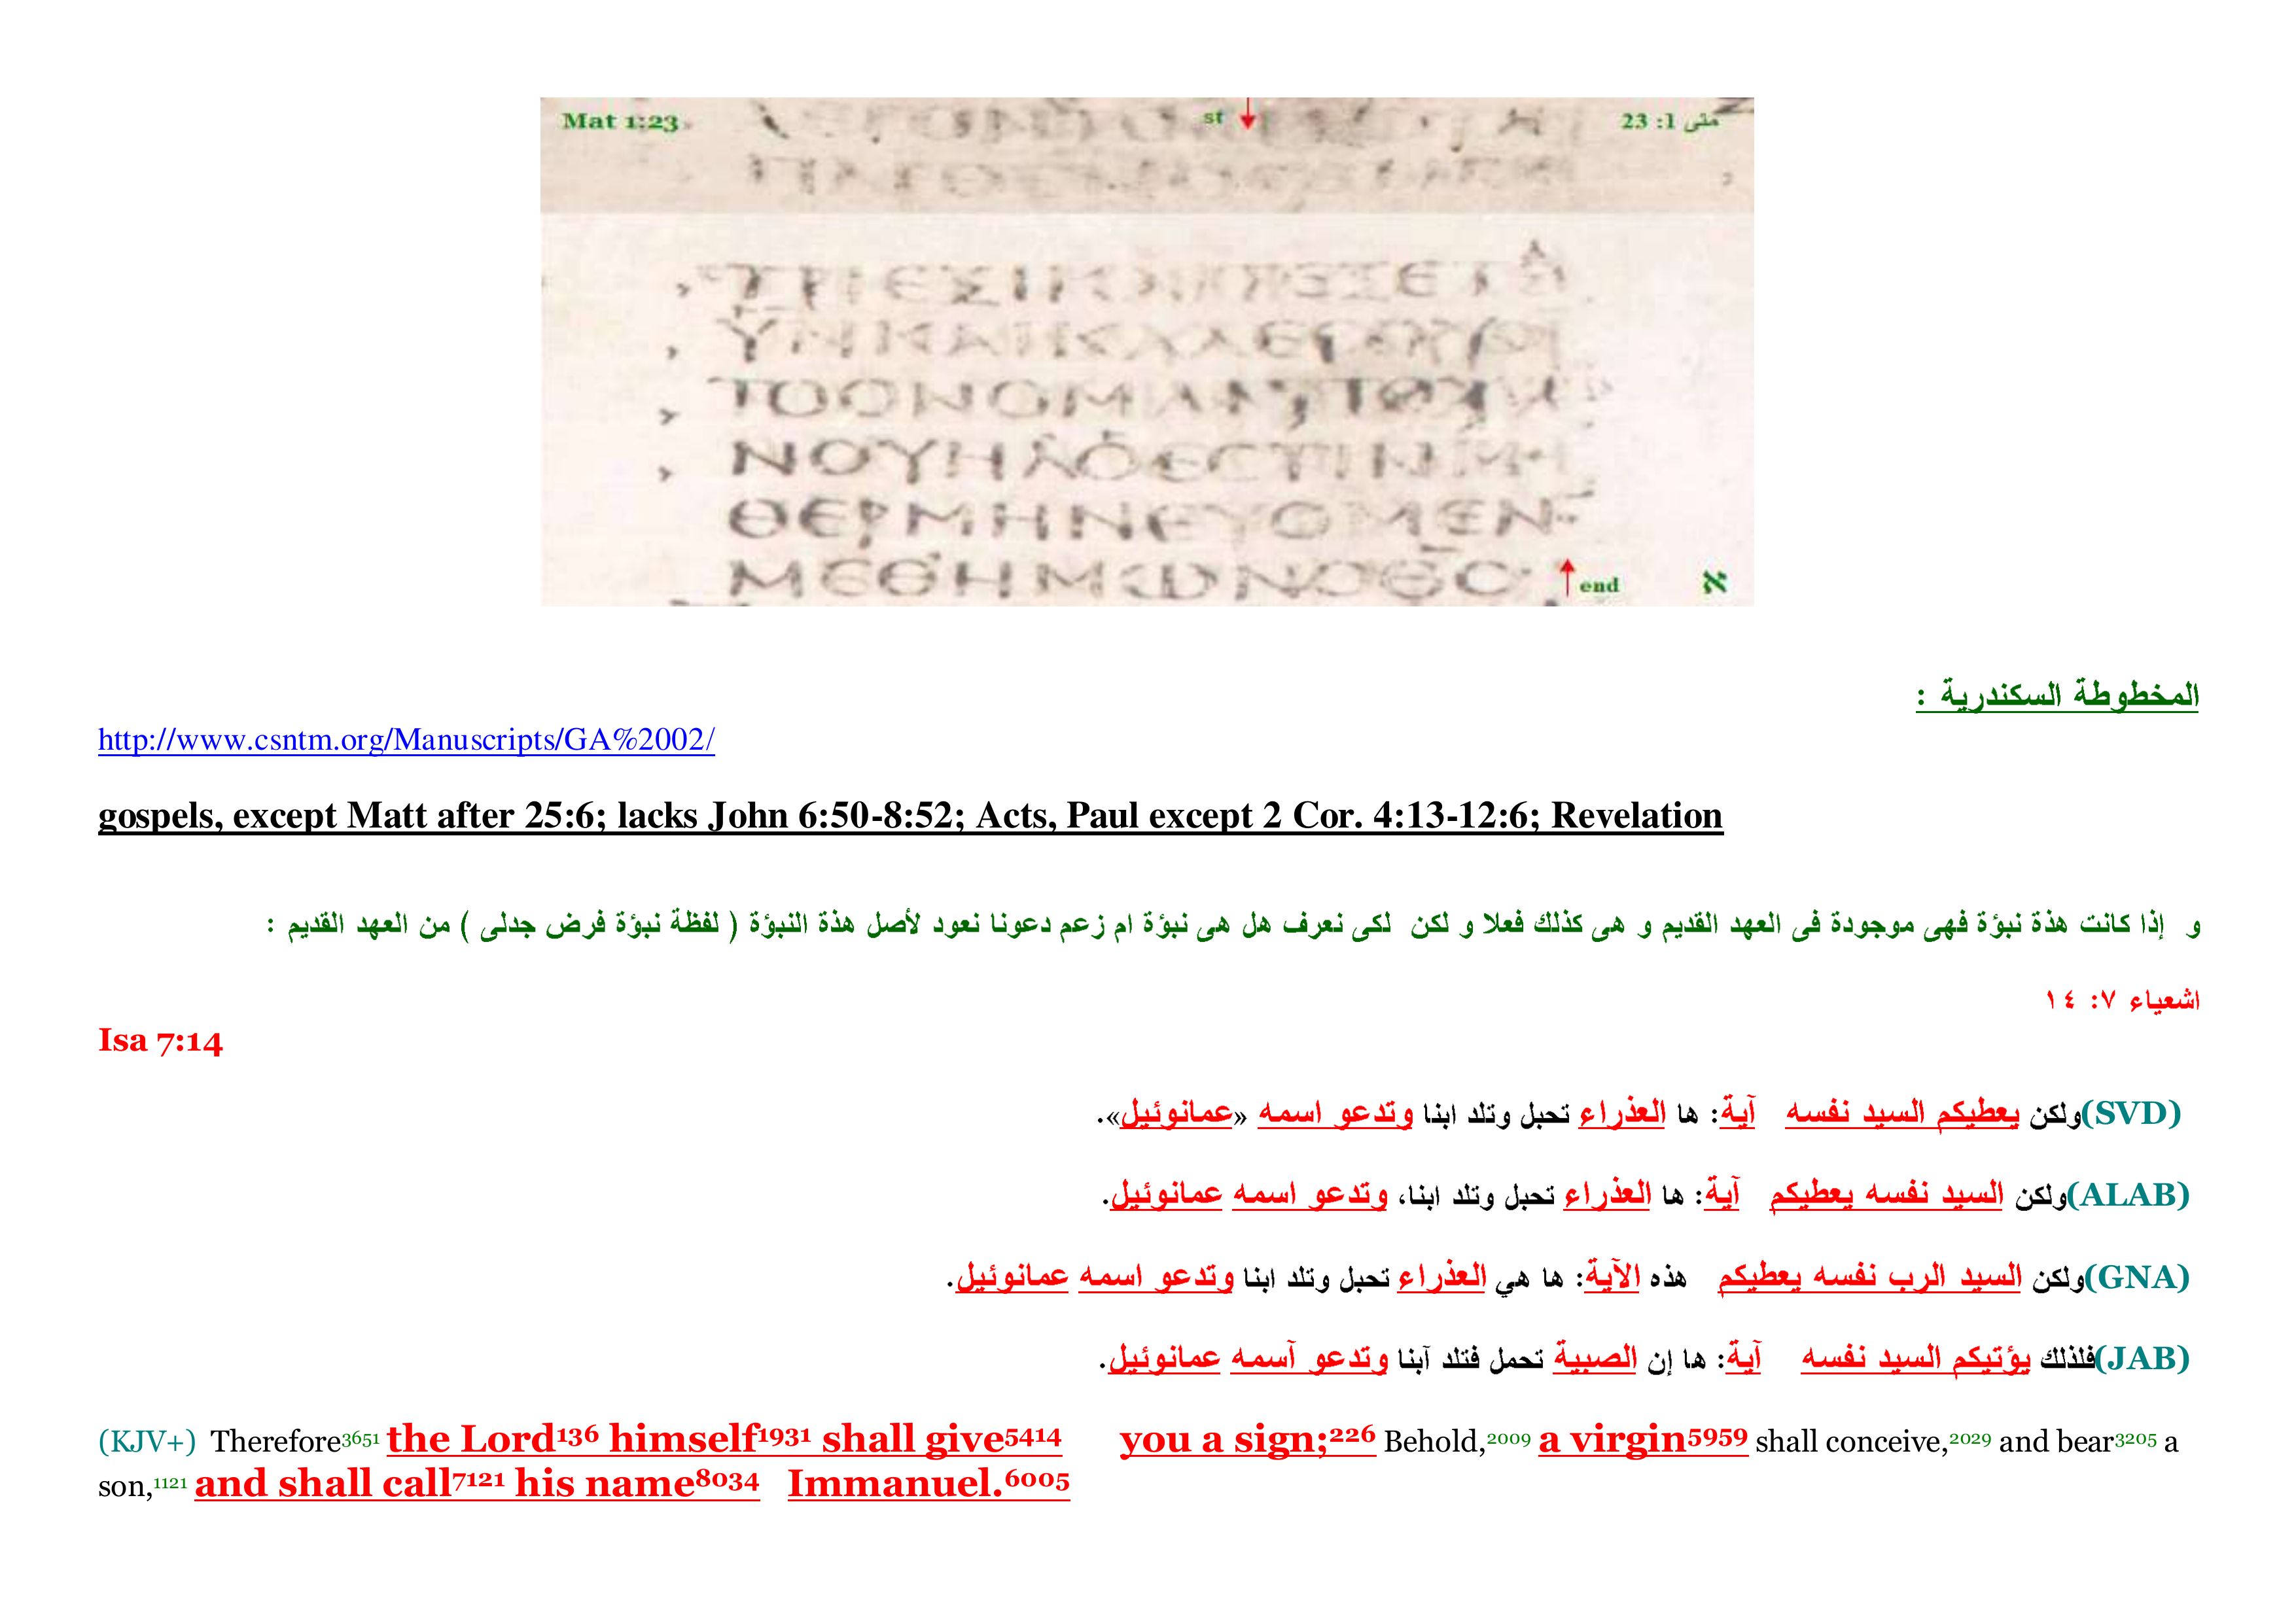 Mat 1:23
st
متى 1: 23
ΝΟΥΗΛΟΕCΤΙΝΜ
ΘΕΡΜΗΝΕΥΟΜΕΝ
ΜΕΘΗΜΩΝΟΘC
end
א
المخطوطة السكندرية :
http://www.csntm.org/Manuscripts/GA%2002/
gospels, except Matt after 25:6; lacks John 6:50-8:52; Acts, Paul except 2 Cor. 4:13-12:6; Revelation
و إذا كانت هذة نبؤة فهى موجودة فى العهد القديم و هى كذلك فعلا و لكن لكى نعرف هل هى نبؤة ام زعم دعونا نعود لأصل هذة النبؤة ( لفظة نبؤة فرض جدلى ) من العهد القديم :
اشعياء ٧: ١٤
Isa 7:14
(SVD)ولكن يعطيكم السيد نفسه آية: ها العذراء تحبل وتلد ابنا وتدعو اسمه «عمانوئيل».
(ALAB)ولكن السيد نفسه يعطيكم آية: ها العذراء تحبل وتلد ابنا، وتدعو اسمه عمانوئيل.
(GNA)ولكن السيد الرب نفسه يعطيكم هذه الآية: ها هي العذراء تحبل وتلد ابنا وتدعو اسمه عمانوئيل.
(JAB)فلذلك يؤتيكم السيد نفسه آية: ها إن الصبية تحمل فتلد آبنا وتدعو آسمه عمانوئيل.
(KJV+) Therefore3651 the Lord136 himself1931 shall give5414 you a sign;226 Behold,2009 a virgin5959 shall conceive,2029 and bear3205 a
son,1121 and shall call7121 his name8034 Immanuel.6005